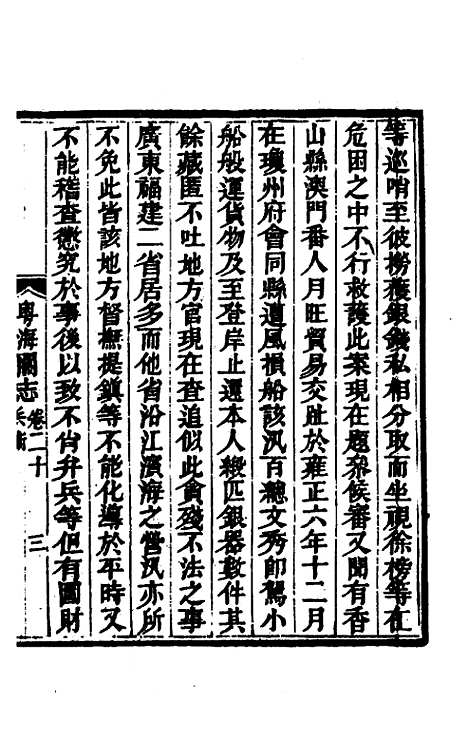 等巡哨至彼榜獲銀錢私相分取而坐視徐榜等在
危困之中不行救護此案現在題叅候審又聞有香
山縣澳門番人月旺貿易交趾於雍正六年十二月
在瓊州府會同縣遭風損船該汛百總文秀即駕小
船般運貨物及至登岸止還本人緞匹銀器數件其
餘藏匿不吐地方官現在查追似此貪殘不法之事
廣東福建二省居多而他省沿江濱海之營汛亦所
不免此皆該地方督撫提鎮等不能化導於平時又
不能稽查懲究於事後以致不肖弁兵等但有圖財
粵海關志 卷二十 兵衛 三